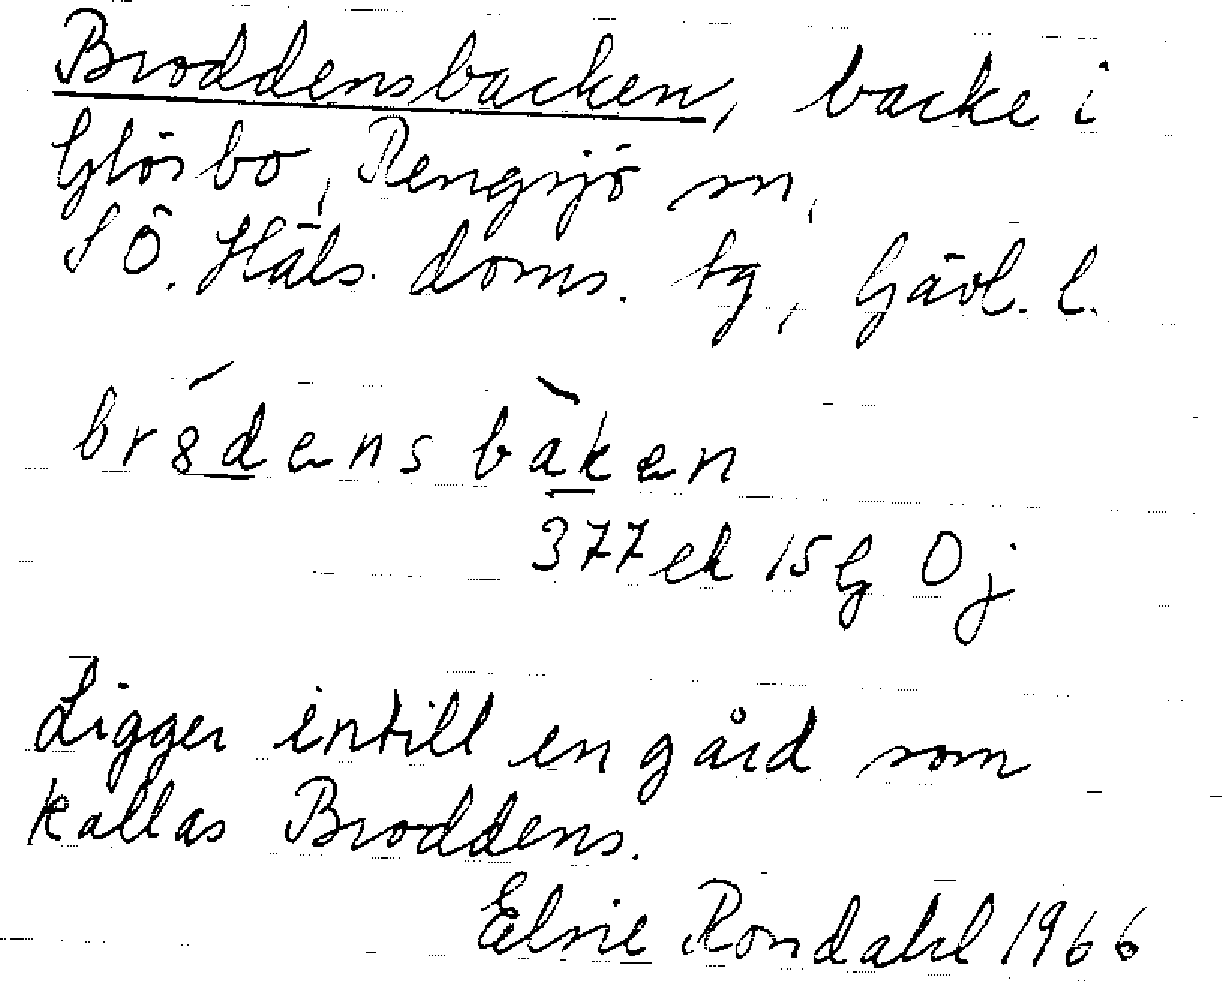 Broddensbacken, backe i
Glösbo, Rengsjö sn,
SÖ. Häls. doms. tg, Gävl. l.
br8́dens bàken
377 ek 15 G Ö j
Ligger intill en gård som
kallas Broddens.
Elsie Rondahl 1966